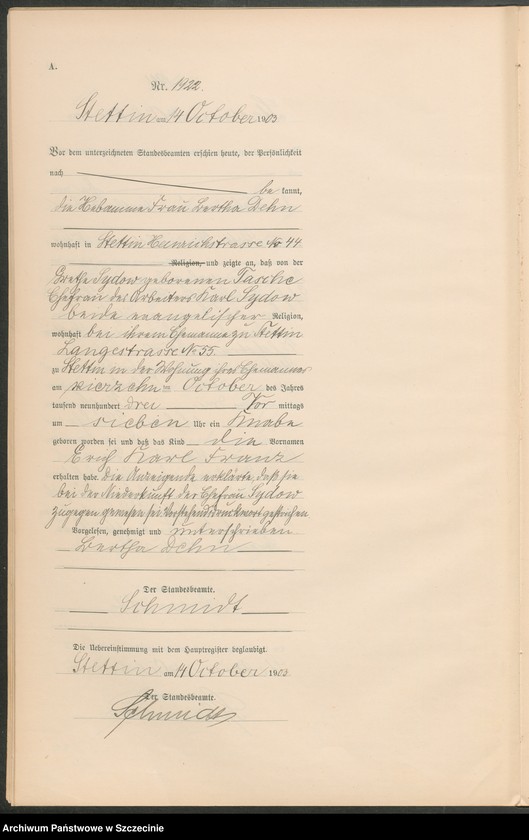 A.
Nr. 1922.
Stettin am 14 October 1903
Vor dem unterzeichneten Standesbeamten erschien heute, der Persönlichkeit
nach
be kannt,
die Hebamme Frau Bertha Dehn
wohnhaft in Stettin Heinrichstrasse No 44
Religion, und zeigte an, daß von der
Grethe Sydow geborenen Tasche
Ehefrau des Arbeiters Karl Sydow
beide evangelischer Religion,
wohnhaft bei ihrem Ehemanne zu Stettin
Langestrasse No 55.
zu Stettin in der Wohnung ihres Ehemannes
am vierzehnten October des Jahres
tausend neunhundert drei Vor mittags
um sieben Uhr ein Knabe
geboren worden sei und daß das Kind die Vornamen
Erich Karl Franz
erhalten habe. Die Anzeigende erklärte, daß sie
bei der Niederkunft der Ehefrau Sydow
zugegen gewesen sei. Vorstehend 1 Druckwort gestrichen
Vorgelesen, genehmigt und unterschrieben
Bertha Dehn
Der Standesbeamte.
Schmidt
Die Uebereinstimmung mit dem Hauptregister beglaubigt.
Stettin am 14 October 1903
Der Standesbeamte.
Schmidt
Archiwum Państwowe w Szczecinie